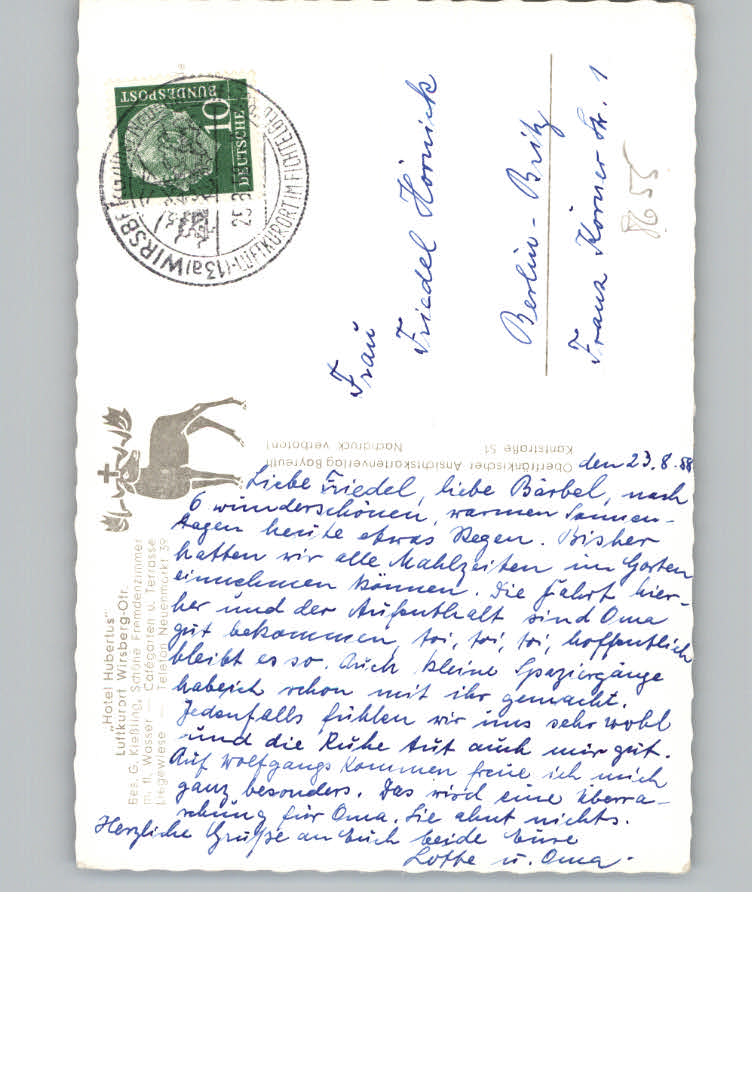 BUNDESPOST
10
DEUTSCHE
(13a) WIRSBERG
LUFTKURORT IM FICHTELGEB
Frau
Friedel Hornick
Berlin - Britz
Franz Körner Str. 1
8655
Oberfränkischer Ansichtskartenverlag Bayreuth
Kantstraße 51 Nachdruck verboten!
"Hotel Hubertus"
Luftkurort Wirsberg-Ofr.
Bes. G. Kießling, Schöne Fremdenzimmer
m. fl. Wasser — Cafégarten u. Terrasse
Liegewiese — Telefon Neuenmarkt 39
den 23.8.58
Liebe Friedel, liebe Bärbel, nach
6 wunderschönen, warmen Sonnen-
tagen heute etwas Regen. Bisher
hatten wir alle Mahlzeiten im Garten
einnehmen können. Die Fahrt hier-
her und der Aufenthalt sind Oma
gut bekommen, toi, toi, toi, hoffentlich
bleibt es so. Auch kleine Spaziergänge
habe ich schon mit ihr gemacht.
Jedenfalls fühlen wir uns sehr wohl
und die Ruhe tut auch mir gut.
Auf Wolfgangs Kommen freue ich mich
ganz besonders. Das wird eine Überra-
schung für Oma. Sie ahnt nichts.
Herzliche Grüße an Euch beide Eure
Lotte u. Oma.